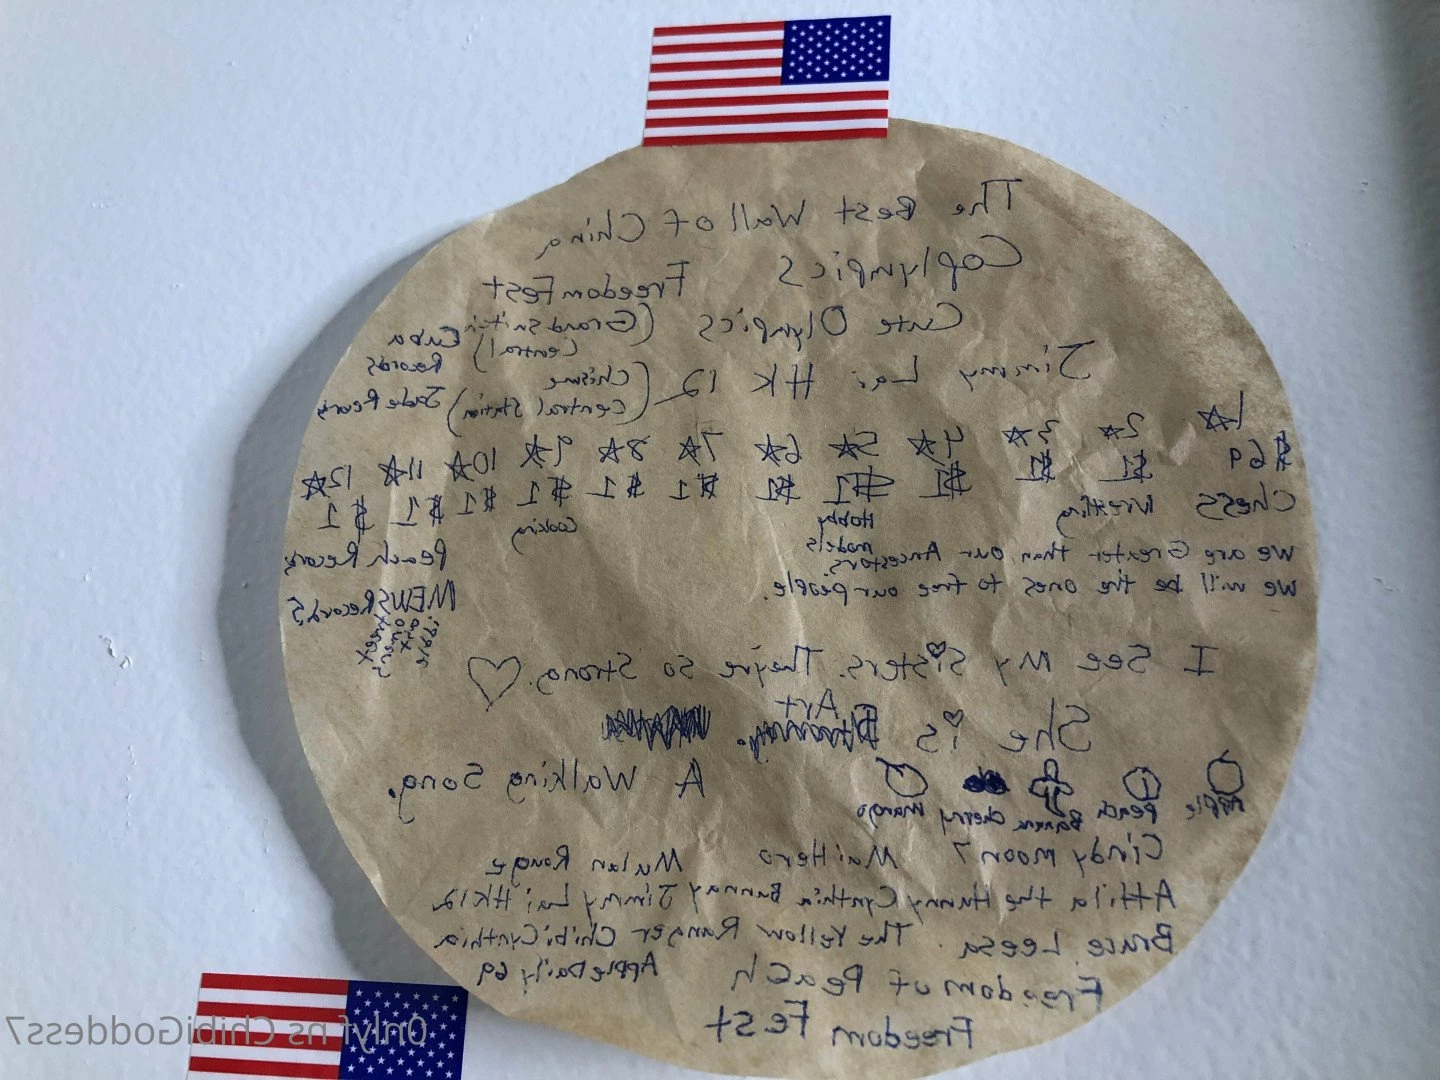 The Best Wall of China
Coplympics FreedomFest
Cute Olympics (Grandsnitsin Central) Cuba Records
Jimmy Lai HK 12 (Chisme Central Station) Jade Records
1☆ 2☆ 3☆ 4☆ 5☆ 6☆ 7☆ 8☆ 9☆ 10☆ 11☆ 12☆
$69 $1 $1 $1 $1 $1 $1 $1 $1 $1 $1 $1
Chess Wrestling Hobby models Cooking
Peach Records
We are Greater than our Ancestors.
we will be the ones to free our people.
MEWS Records
I See My Sisters. They're So Strong. ♡
She is Art
A Walking Song.
Apple Peach Banana Cherry Mango
Cindy moon 7 Mai Hero Mulan Rouge
Attila the Hunny Cynthia Bunnay Jimmy Lai HK12
Bruce Leesa. The Yellow Ranger ChibiCynthia
Freedom of Peach AppleDaily 69
Freedom Fest
Onlyf ns ChibiGoddess7